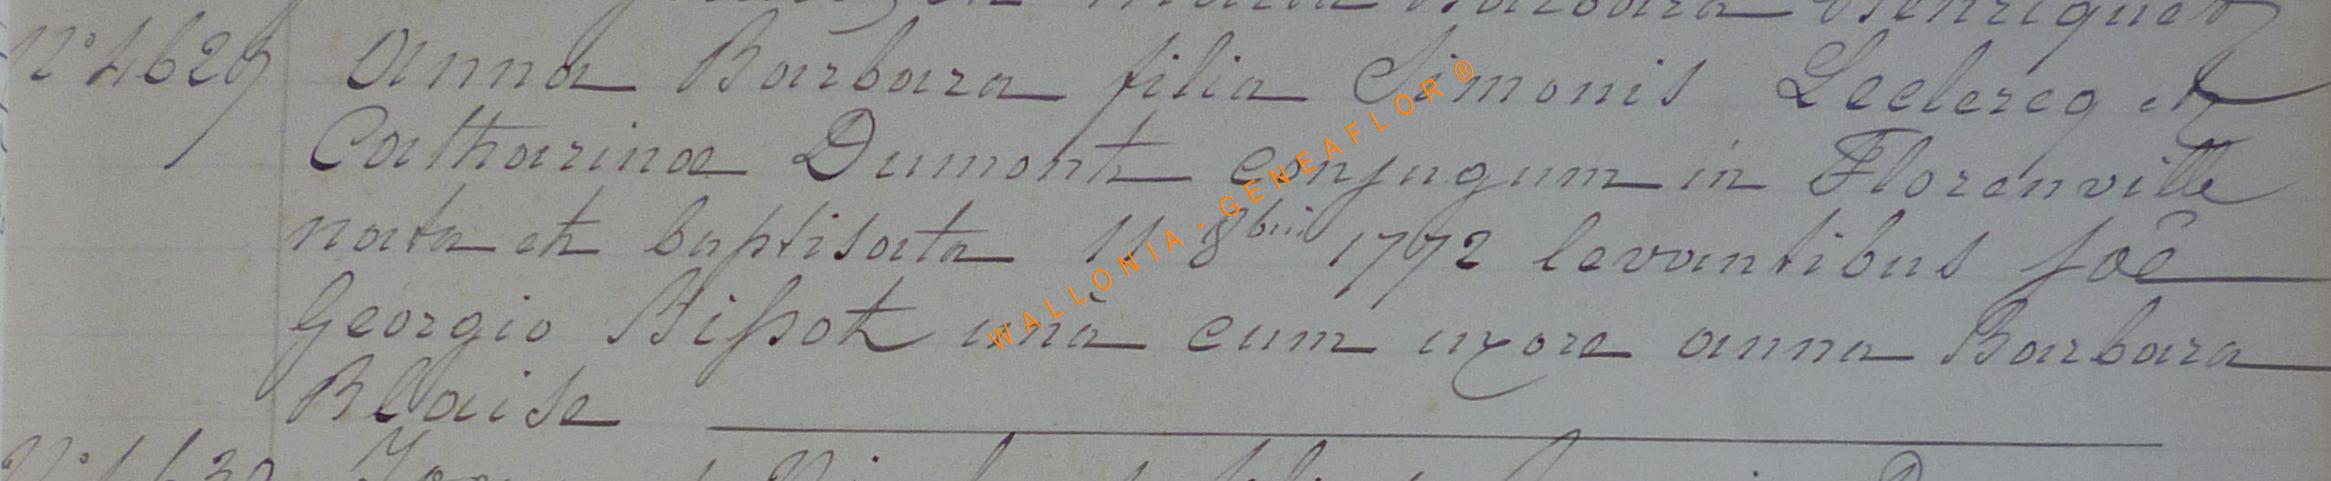 Maria Barbara Henriquet
N° 4629 Anna Barbara filia Simonis Leclercq et
Catharinæ Dumont conjugum in Florenville
nata et baptisata 11 8bris 1772 levantibus Joê
Georgio Bissot unà cum uxore anna Barbara
Blaise
N° 4630
WALLONIA-GENEAFLOR®